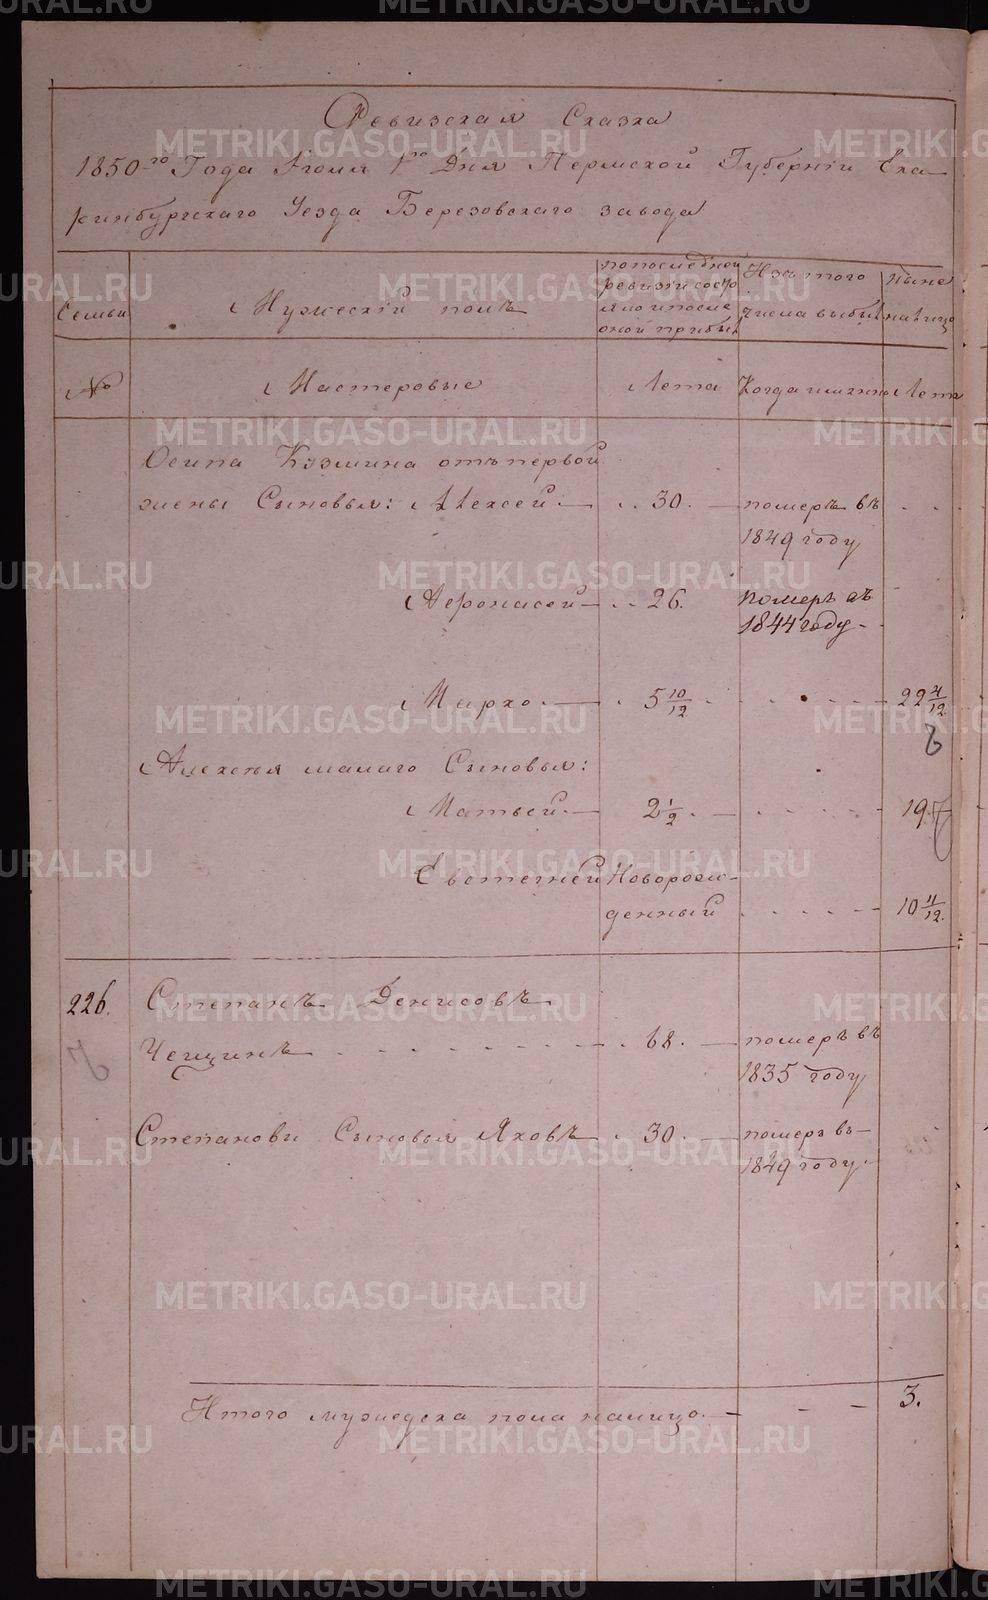 Ревизская Сказка
1850-го Года Іюля 1го Дня Пермской Губерніи Ека-
ринбургскаго Уезда Березовскаго завода
Семьи
Мужескій полъ
попоследней
ревизіи состо
яло ипосле
оной прибы
Изътого
числа выбыл
ныне
налицо
№
Мастеровые
Лета
Когда именно
Лета
Осипа Кузмина отъпервой
жены Сыновья: Алексей 30. померъ въ
1849 году
Афонасей 26. померъ въ
1844 году
Марко 5 10/12 22 4/12
Алексея малаго Сыновья:
Матвей 2 1/2 19.
Евстегней Новорож-
денный 10 11/12
226. Степанъ Денисовъ
Чещинъ 68. померъ въ
1835 году
Степановы Сыновья Яковъ 30. померъ въ
1849 году
Итого мужедска пола налицо 3.
METRIKI.GASO-URAL.RU